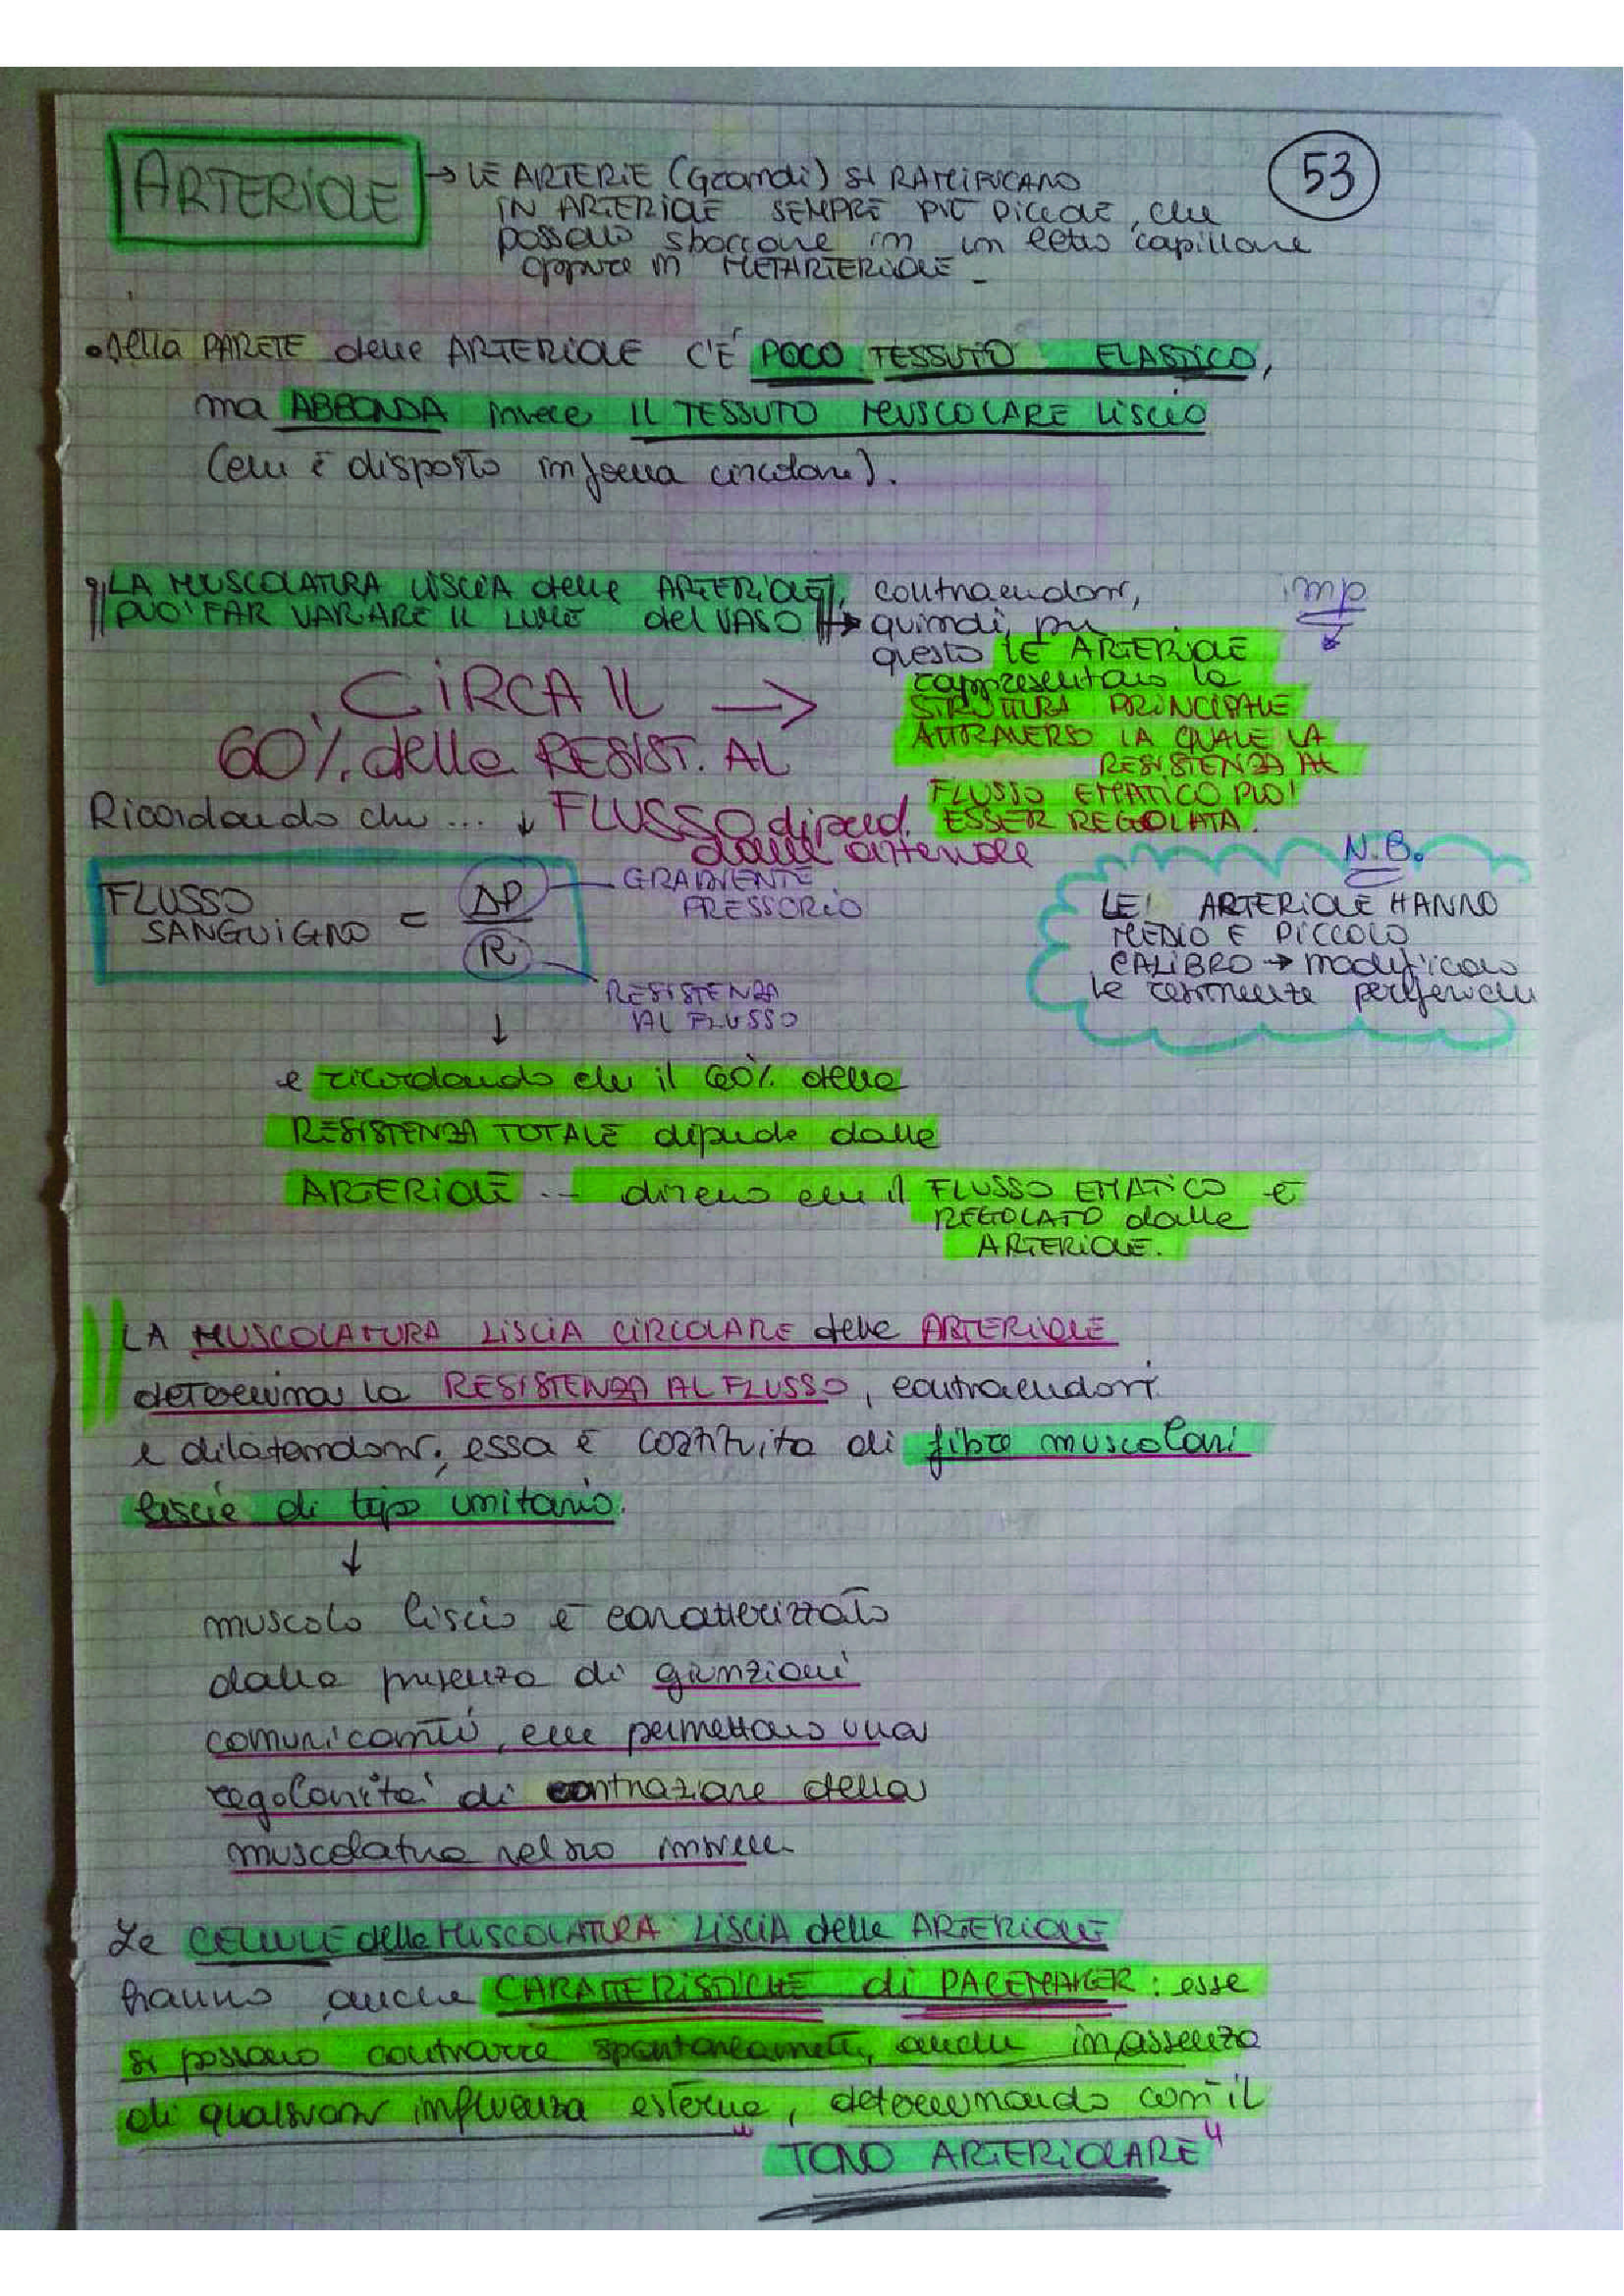 ARTERIOLE
53
→ LE ARTERIE (Grandi) SI RAMIFICANO
IN ARTERIOLE SEMPRE PIÙ PICCOLE, che
possono sboccare in un letto capillare
oppure in METARTERIOLE_
• Nella PARETE delle ARTERIOLE C'È POCO TESSUTO ELASTICO,
ma ABBONDA invece IL TESSUTO MUSCOLARE LISCIO
(che è disposto in forma circolare).
• LA MUSCOLATURA LISCIA delle ARTERIOLE, contraendosi,
PUO' FAR VARIARE IL LUME del VASO → quindi, per
imp
questo LE ARTERIOLE
rappresentano la
STRUTTURA PRINCIPALE
ATTRAVERSO LA QUALE LA
RESISTENZA AL
FLUSSO EMATICO PUO'
ESSER REGOLATA.
CIRCA IL →
60% delle RESIST. AL
FLUSSO dipend.
dalle arteriole
Ricordando che ... ↓
FLUSSO
SANGUIGNO = ΔP
R
GRADIENTE
PRESSORIO
RESISTENZA
AL FLUSSO
N.B.
LE ARTERIOLE HANNO
MEDIO E PICCOLO
CALIBRO → modificano
le resistenze periferiche
↓
e ricordando che il 60% della
RESISTENZA TOTALE dipende dalle
ARTERIOLE ... diremo che il FLUSSO EMATICO è
REGOLATO dalle
ARTERIOLE.
LA MUSCOLATURA LISCIA CIRCOLARE delle ARTERIOLE
determina la RESISTENZA AL FLUSSO, contraendosi
e dilatandosi; essa è costituita di fibre muscolari
liscie di tipo unitario.
↓
muscolo liscio è caratterizzato
dalla presenza di giunzioni
comunicanti, che permettono una
regolarità di contrazione della
muscolatura nel suo insieme
Le CELLULE della MUSCOLATURA LISCIA delle ARTERIOLE
hanno anche CARATTERISTICHE di PACEMAKER: esse
si possono contrarre spontaneamente, anche in assenza
di qualsiasi influenza esterna, determinando così il
"TONO ARTERIOLARE"